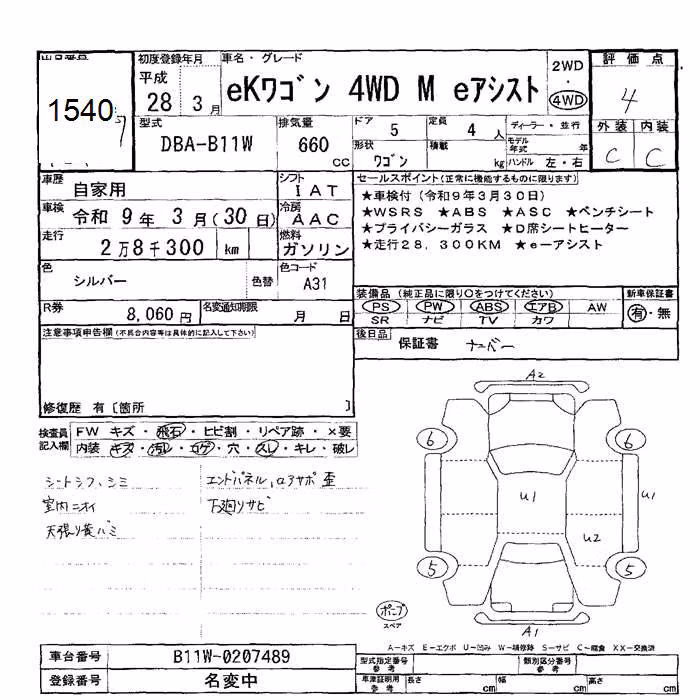 初度登録年月 車名・グレード 2WD 評価点
1540 平成 28 3月 eKワゴン 4WD M eアシスト ・ 4WD 4
型式 排気量 ドア 5 定員 4 人 ディーラー・並行 外装 内装
DBA-B11W 660 cc 形状 ワゴン 積載 kg モデル年式 年 ハンドル 左・右 C C
車歴 自家用 シフト IAT セールスポイント(正常に機能するものに限ります)
車検 令和 9年 3月(30日) 冷房 AAC ★車検付(令和9年3月30日)
★WSRS ★ABS ★ASC ★ベンチシート
走行 2万8千300 km 燃料 ガソリン ★プライバシーガラス ★D席シートヒーター
★走行28,300KM ★e-アシスト
色 シルバー 色替 色コード A31
装備品(純正品に限り○をつけてください) 新車保証書
R券 8,060円 名変通知期限 月 日 PS PW ABS エアB AW 有・無
SR ナビ TV カワ
注意事項申告欄(不具合内容等は具体的に記入して下さい) 後日品 保証書 ナーバー
修復歴 有〔箇所 〕
検査員記入欄 FW キズ・飛石・ヒビ割・リペア跡・×要
内装 キズ・汚レ・コゲ・穴・スレ・キレ・破レ
シートシワ、シミ エンドパネル、ロアサポ歪
室内ニオイ 下廻りサビ
天張り黄バミ
A2
6 6
U1 U1
U2
5 5
スペア
A1
A-キズ E-エクボ U-凹み W-補修跡 S-サビ C-腐食 XX-交換済
車台番号 B11W-0207489 型式指定番号 参考 類別区分番号 参考
登録番号 名変中 車庫証明用 参考 長さ cm 幅 cm 高さ cm